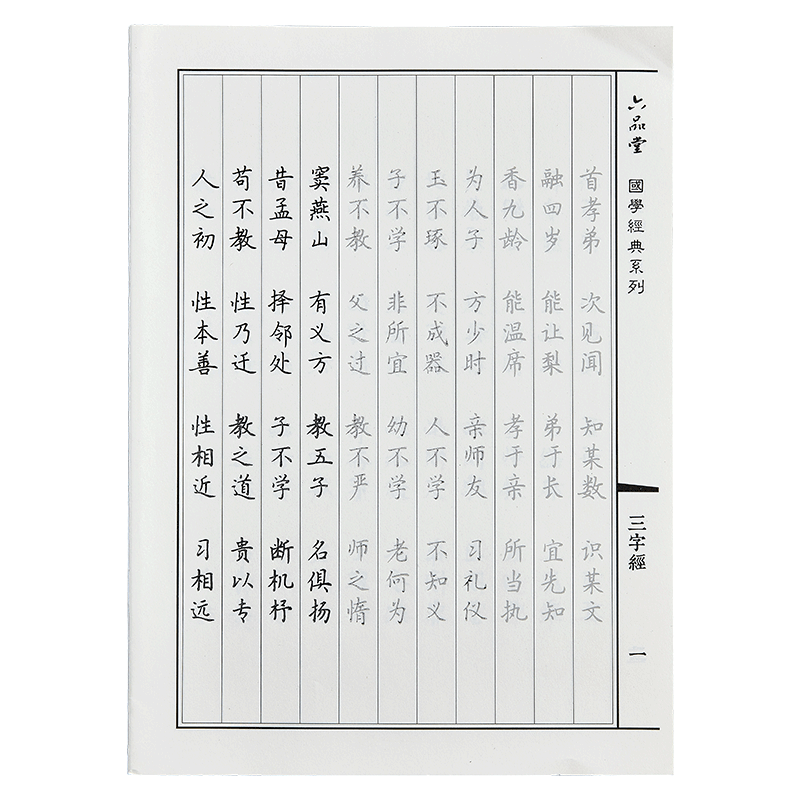 人之初 性本善 性相近 习相远
苟不教 性乃迁 教之道 贵以专
昔孟母 择邻处 子不学 断机杼
窦燕山 有义方 教五子 名俱扬
养不教 父之过 教不严 师之惰
子不学 非所宜 幼不学 老何为
玉不琢 不成器 人不学 不知义
为人子 方少时 亲师友 习礼仪
香九龄 能温席 孝于亲 所当执
融四岁 能让梨 弟于长 宜先知
首孝弟 次见闻 知某数 识某文
六品堂 國學經典系列 三字經 一